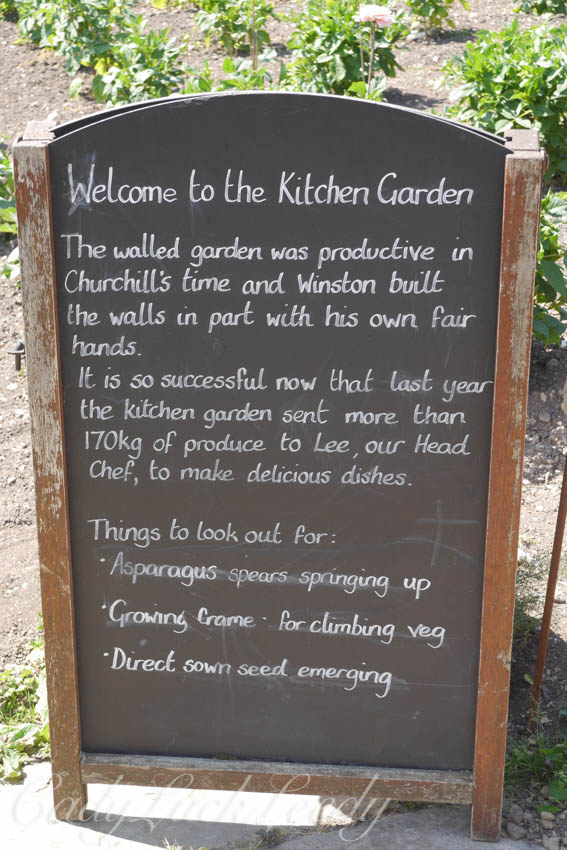 Welcome to the Kitchen Garden
The walled garden was productive in
Churchill's time and Winston built
the walls in part with his own fair
hands.
It is so successful now that last year
the kitchen garden sent more than
170kg of produce to Lee, our Head
Chef, to make delicious dishes.
Things to look out for:
· Asparagus spears springing up
· Growing frame · for climbing veg
· Direct sown seed emerging
LadyLuck Leedy